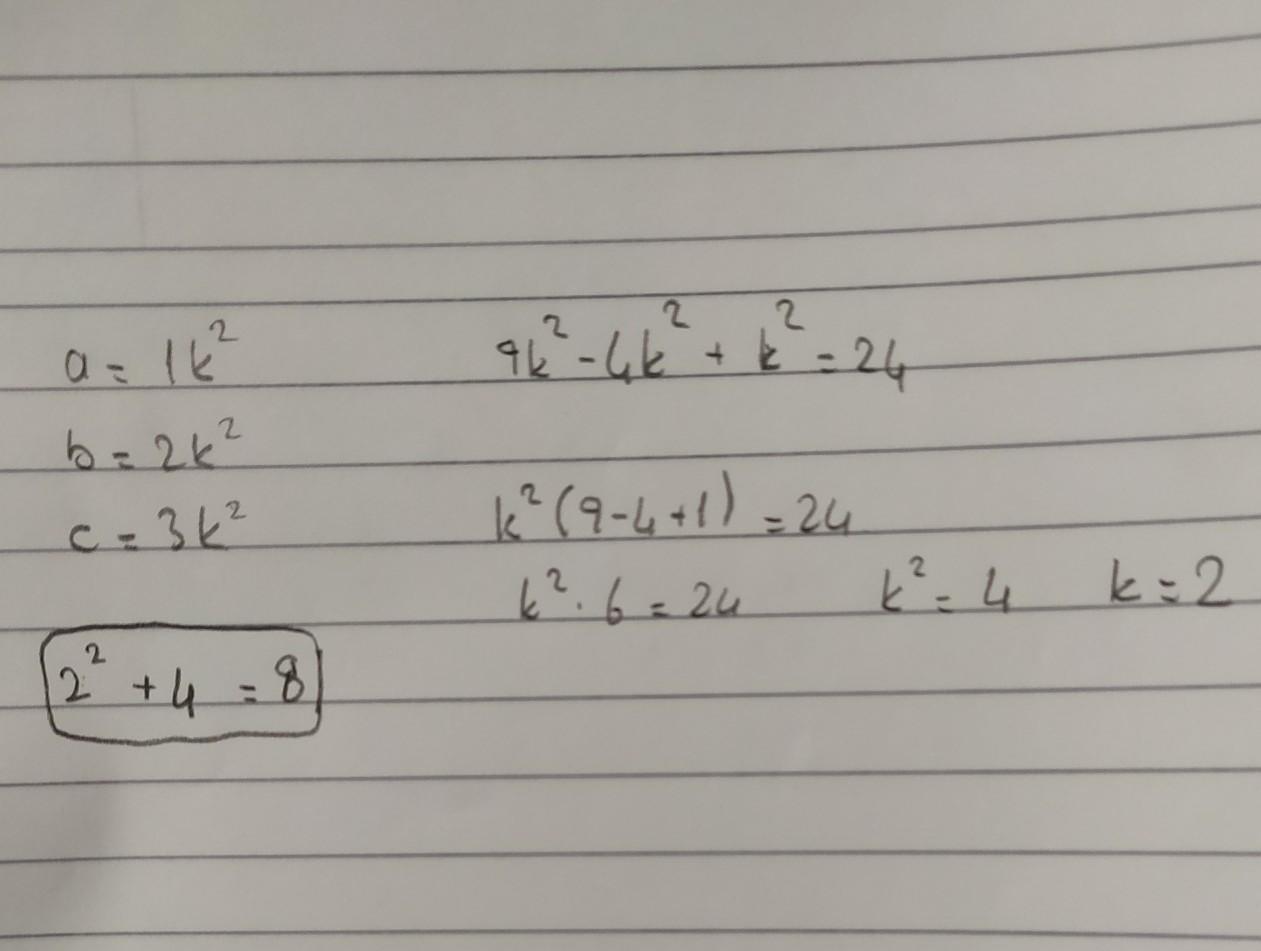 a = 1k²
b = 2k²
c = 3k²
2² + 4 = 8
9k² - 4k² + k² = 24
k² (9-4+1) = 24
k² . 6 = 24 k² = 4 k = 2